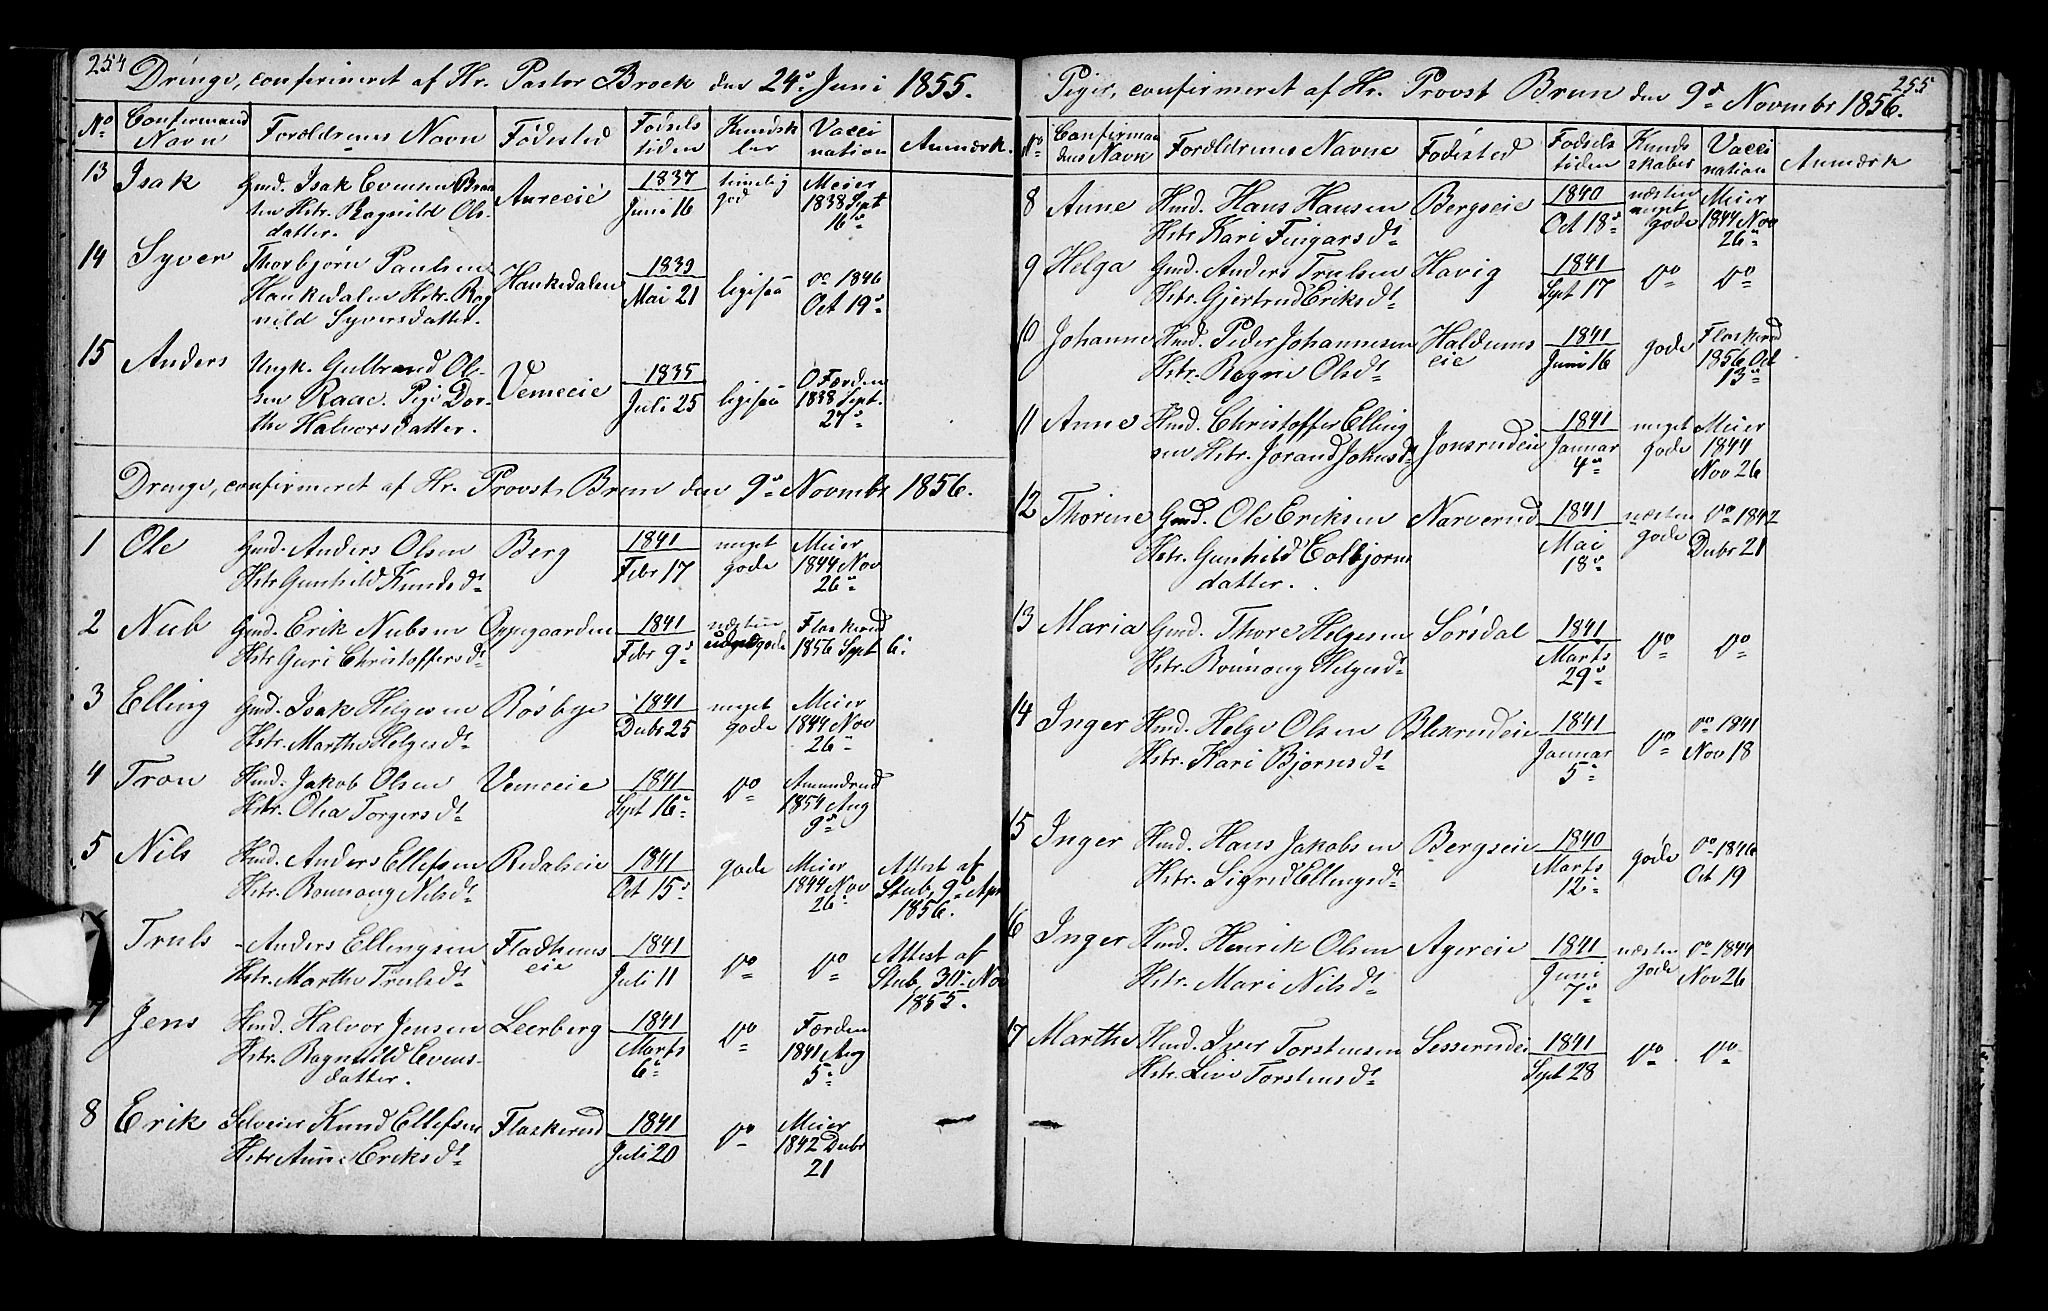 254
Drenge, confirmeret af Hr. Pastor Brock den 24de Juni 1855.
No Confirmand Navn Forældrenes Navn Fødested Fødsels tiden Kundsk ber Vacci nation Anmærk.
13 Isak Gmd. Isak Evensen Braa Aureeie 1837 temelig Meier
ten Hstr. Ragnild Ols- Juni 16 god 1838 Sept
datter. 16de
14 Syver Thorbjørn Paulsen Haukedalen 1839 ligesaa Do 1846
Haukedalen Hstr. Rag Mai 21 Oct 19de
nild Syversdatter.
15 Anders Ungk. Gulbrand Ol- Vemeeie 1835 ligesaa O Færden
sen Raae. Pige Dor- Juli 25 1838 Sept.
the Halvorsdatter. 27de
Drenge, confirmeret af Hr. Provst Brun den 9de Novembr 1856.
1 Ole Gmd. Anders Olsen Berg 1841 meget Meier
Hstr Gunhild Knudsdt Febr 17 gode 1844 Nov
26de
2 Nub Gmd. Erik Nubsen Oppegaarden 1841 næsten Flaskerud
Hstr Guri Christoffersdt Febr 9de gode 1856 Sept 6te
3 Elling Gmd. Isak Helgesen Røsbye 1841 meget Meier
Hstr. Marthe Helgesdt Decbr 25 gode 1844 Nov
26
4 Tron Hmd. Jakob Olsen Vemeeie 1841 Do Amundrud
Hstr. Olia Torgersdt Sept 16de 1854 Aug
9de
5 Nils Hmd. Anders Ellefsen Redalseie 1841 gode Meier Attest af
Hstr. Rønnaug Nilsdt Oct 15de 1844 Nov Stub, 9de Apr
26 1856.
Truls Anders Ellingsen Fladhuus 1841 Do Do Attest af
Hstr. Marthe Trulsdt eie Juli 11 Stub, 30te Nov
1855.
7 Jens Hmd. Halvor Jensen Leerberg 1841 Do Færden
Hstr. Ragnhild Evens- Marts 1841 Aug
datter. 6te 5te
8 Erik Selveier Knud Ellefsen Flaskerud 1841 Do Meier
Hstr Anne Eriksdt Juli 20 1842 Decbr
21
255
Piger, confirmeret af Hr. Provst Brun den 9de Novembr 1856.
No Confirman dens Navn Forældrenes Navne Fødested Fødsels tiden Kund skaber Vacci nation Anmærk
8 Anne Hmd. Hans Hansen Bergseie 1840 næsten Meier
Hstr Kari Fingarsdt Oct 18de meget gode 1844 Nov
26de
9 Helga Gmd. Anders Trulsen Havig 1841 Do Do
Hstr. Gjertrud Eriksdt Sept 17
10 Johanne Hmd. Peder Johannesen Haldums 1841 gode Flaskerud
Hstr. Ragne Olsdt eie Juni 16 1856 Oct
13de
11 Anne Hmd. Christoffer Elling Jonsrudeie 1841 meget Meier
sen Hstr. Jorand Johnsdt Januar gode 1844
4de Nov 26
12 Thorine Gmd. Ole Eriksen Narverud 1841 næsten Do 1842
Hstr. Gunhild Colbjørns Mai gode Decbr 21
datter. 18de
13 Maria Gmd. Thore Helgesen Sørsdal 1841 Do Do
Hstr. Rønnaug Helgesdt Marts
29de
14 Inger Hmd. Helge Olsen Blexrudeie 1841 Do Do 1841
Hstr. Kari Bjørnsdt Januar Nov 18
5te
15 Inger Hmd. Hans Jakobsen Bergseie 1840 gode Do 1846
Hstr. Sigrid Ellingsdt Marts Oct 19
12te
16 Inger Hmd. Henrik Olsen Agereie 1841 næsten Do 1844
Hstr. Mari Nilsdt Juni gode Nov 26
7de
17 Marthe Hmd. Iver Torstensen Sesserudeie 1841 Do Do
Hstr. Live Torstensdt Sept 28